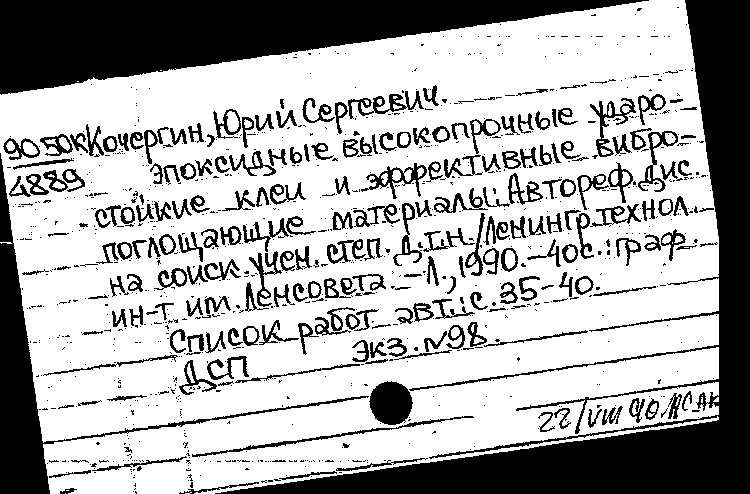 90 50к Кочергин, Юрий Сергеевич.
4889 Эпоксидные высокопрочные ударо-
стойкие клеи и эффективные вибро-
поглощающие материалы: Автореф. дис.
на соиск. учен. степ. д.т.н. /Ленингр. технол.
ин-т им. Ленсовета. - Л., 1990. - 40с.: граф.
Список работ авт.: с. 35-40.
ДСП Экз. №98.
22/VIII 90